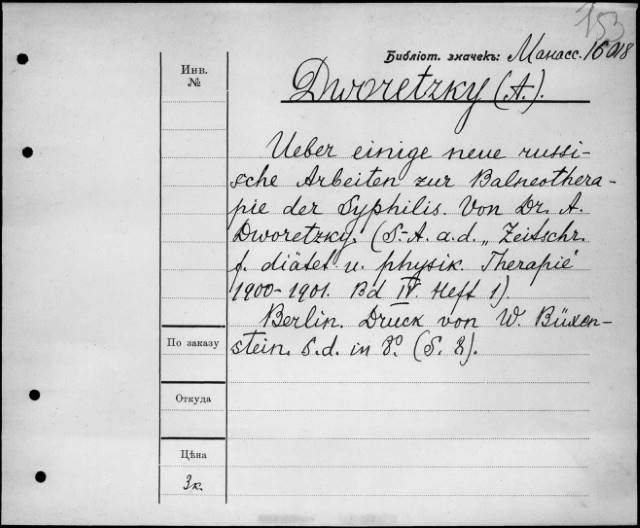 153
Библіот. значекъ: Манасс. 16018
Инв.
№
Dworetzky (A.).
Ueber einige neue russi-
sche Arbeiten zur Balneothera-
pie der Syphilis. Von Dr. A.
Dworetzky. (S.-A. a. d. „Zeitschr.
f. diätet. u. physik. Therapie"
1900-1901. Bd IV. Heft 1).
Berlin. Druck von W. Büxen-
stein. S. d. in 8º. (S. 8).
По заказу
Откуда
Цѣна
3к.